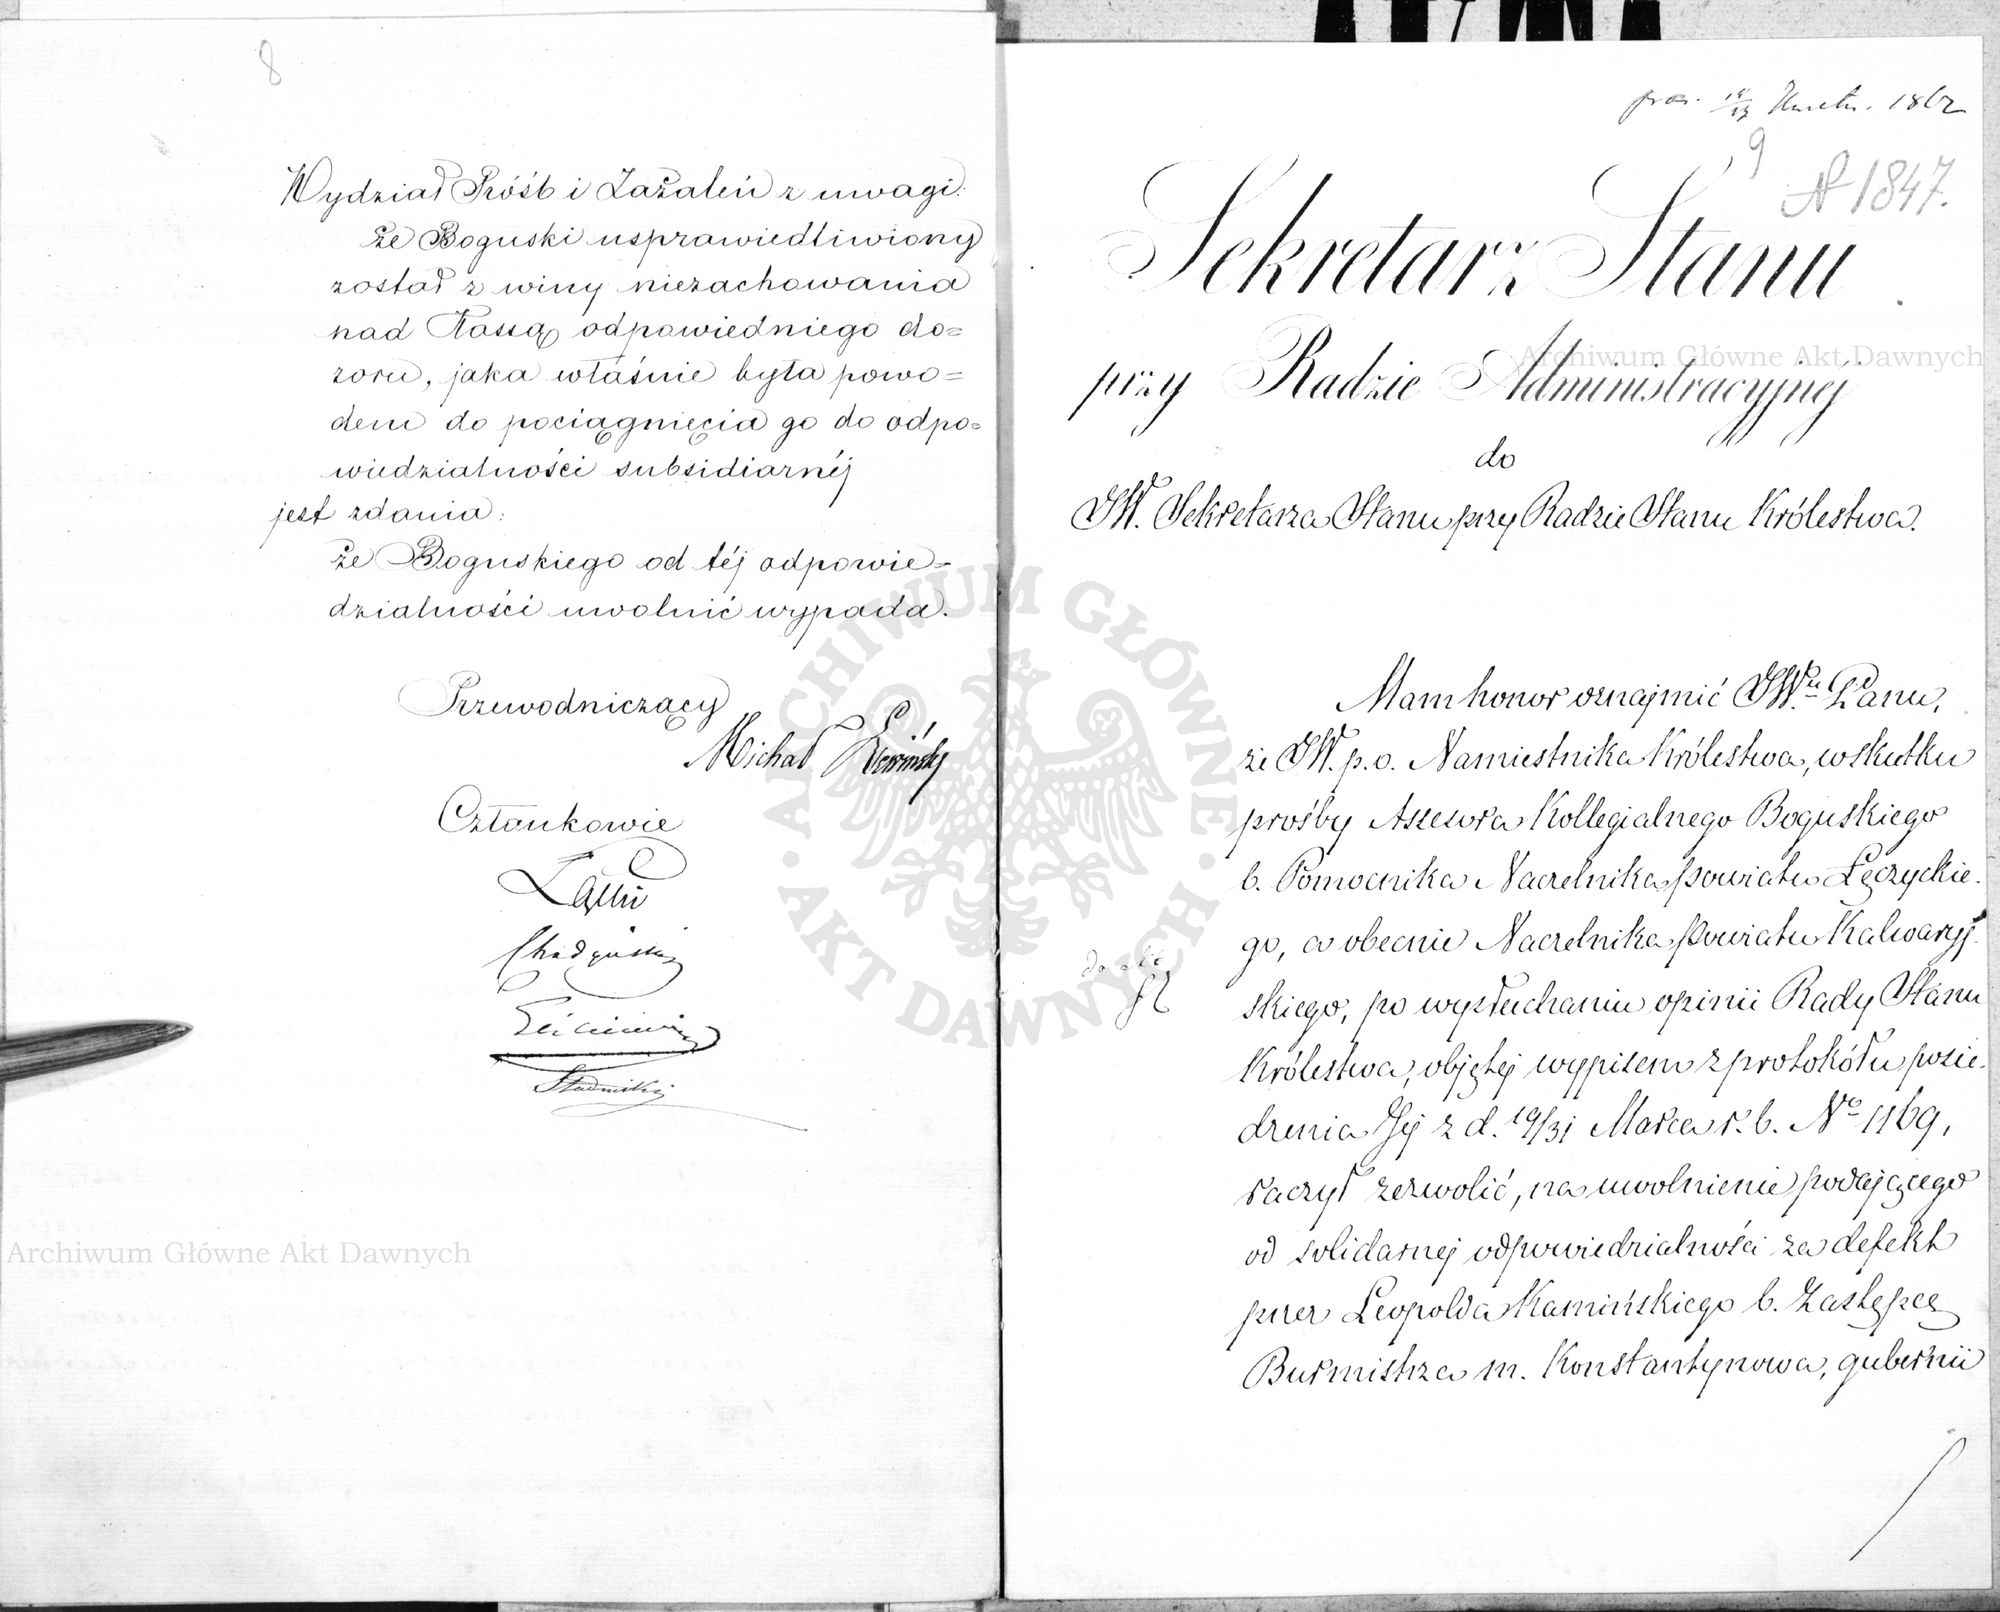 8
Wydział Próśb i Zażaleń z uwagi:
że Boguski usprawiedliwiony
został z winy niezachowania
nad Kassą odpowiedniego do=
zoru, jaka właśnie była powo=
dem do pociągnięcia go do odpo=
wiedzialności subsidiarnéj
jest zdania:
że Boguskiego od téj odpowie=
dzialności uwolnić wypada.
Przewodniczący
Michał
Członkowie
Stadnicki
Archiwum Główne Akt Dawnych
1862
9
N 1847.
Sekretarz Stanu
przy Radzie Administracyjnéj
Archiwum Główne Akt Dawnych
do
JW. Sekretarza Stanu przy Radzie Stanu Królestwa.
Mam honor oznajmić JW.u Panu,
że JW. p.o. Namiestnika Królestwa, w skutku
prośby Assesora Kollegialnego Boguskiego
b. Pomocnika Naczelnika Powiatu Łęczyckie-
go, a obecnie Naczelnika Powiatu Kalwaryj-
skiego, po wysłuchaniu opinii Rady Stanu
Królestwa, objętej wypisem z protokółu posie-
dzenia Jej z d. 19/31 Marca r. b. No 1169,
raczył zezwolić, na uwolnienie podającego
od solidarnej odpowiedzialności za defekt
przez Leopolda Kamińskiego b. Zastępcę
Burmistrza m. Konstantynowa, gubernii
ARCHIWUM GŁÓWNE
AKT DAWNYCH